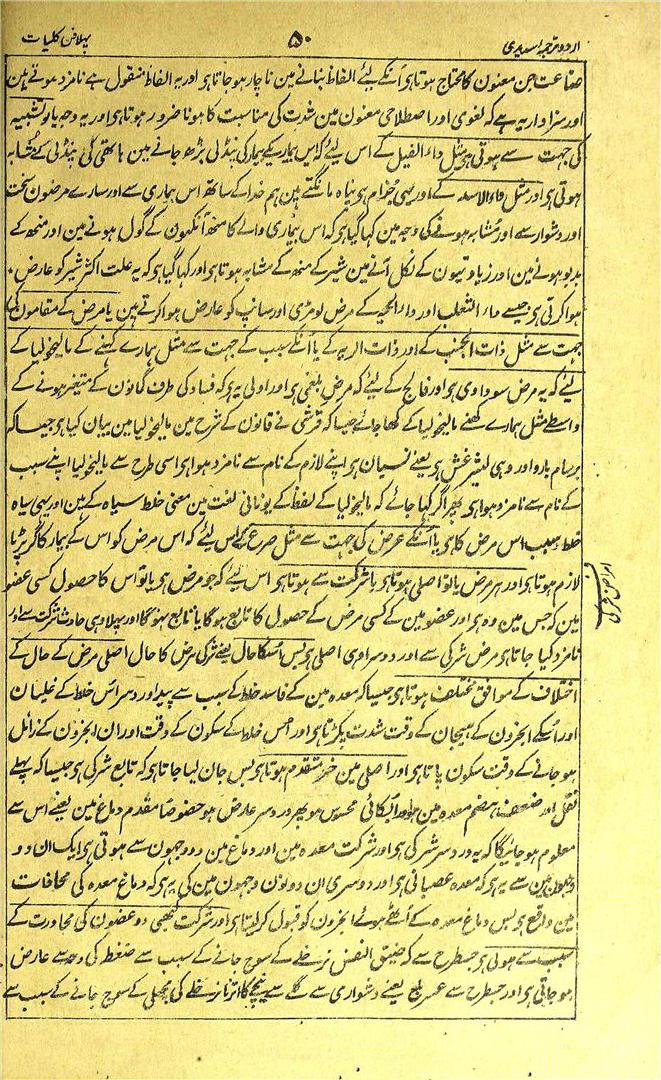 اردو ترجمہ سدیدی ۵۰ پہلا فن کلیات
صناعت جن معنون کا محتاج ہوتا ہی اُنکے لیئے الفاظ بنانے مین ناچار ہو جاتا ہی اور یہ الفاظ منقول ہے نامزد ہوتے ہین
اور سزاوار یہ ہے کہ لغوی اور اصطلاحی معنون مین شدت کی مناسبت کا ہونا ضرور ہوتا ہی اور یہ وجہ یا تو تشبیہ
کی جہت سے ہوتی ہی مثل داء الفیل کے اس لیئے کہ اس بیمار کی پنڈلی بڑھ جانے مین ہاتھی کی پنڈلی کے مشابہ
ہوتی ہی اور مثل داء الاسد کے اور یہی جُزام ہی پناہ مانگتے ہین ہم خدا کے ساتھ اس بیماری سے اور سارے مرضون سخت
اور دشوار سے اور مُشابہ ہونے کی وجہ مین کہا گیا ہی کہ اس بیماری والے کا منھ آنکھون کے گول ہونے مین اور منھ کے
بدبو ہونے مین اور زیادتیون کے نکل آنے مین شیر کے منھ کے مشابہ ہوتا ہی اور کہا گیا ہی کہ یہ علت اکثر شیر کو عارض
ہوا کرتی ہی جیسے داء الثعلب اور داء الحیہ کے مرض لومڑی اور سانپ کو عارض ہوا کرتے ہین یا مرض کے مقامون کی
جہت سے مثل ذات الجنب کے اور ذات الریہ کے یا اُنکے سبب کے جہت سے مثل ہمارے کہنے کے مالیخولیا کے
لیئے کہ یہ مرض سوداوی ہی اور فالج کے لیئے کہ مرض بلغمی ہی اور اولی یہ ہی کہ فساد کی طرف گمانون کے متغیر ہونے کے
واسطے مثل ہمارے کہنے مالیخولیا کے کہا جائے جیسا کہ قرشی نے قانون کے شرح مین مالیخولیا مین بیان کیا ہی جیسا کہ
برسام بارد اور وہی لیثرغس ہی یعنے نسیان ہی اپنے لازم کے نام سے نامزد ہوا ہی اسی طرح سے مالیخولیا اپنے سبب
کے نام سے نامزد ہوا ہی پھر اگر کہا جائے کہ مالیخولیا کے لفظ کے یونانی لغت مین معنی خلط سیاہ کے ہین اور یہی سیاہ
خلط سبب اس مرض کا ہی یا اُنکے عرض کی جہت سے مثل صرع کے اس لیئے کہ اس مرض کو اس کے بیمار کا گر پڑنا
لازم ہوتا ہی اور ہر مرض یا تو اصلی ہوتا ہی یا شرکت سے ہوتا ہی اس لیئے کہ جو مرض ہی یا تو اس کا حصول کسی عضو
مین کہ جس مین وہ ہی اور عضو مین کے کسی مرض کے حصول کا تابع ہوگا یا تابع نہوگا اور پہلا وہی حادث شرکت سے اور
نامزد کیا جاتا ہی مرض شرکی سے اور دوسرا وہی اصلی ہی پس اُسکا حال یعنے شرکی مرض کا حال اصلی مرض کے حال کے
اختلاف کے موافق مختلف ہوتا ہی جیسا کہ معدہ مین کے فاسد خلط کے سبب سے پیدا درد سر اُس خلط کے غلیان
اور اُسکے ابخرون کے ہیجان کے وقت شدت پکڑتا ہی اور اُس خلط کے سکون کے وقت اور ان ابخرون کے زائل
ہو جانے کے وقت سکون پاتا ہی اور اصلی مین ضرر متقدم ہوتا ہی پس جان لیا جاتا ہی کہ تابع شرکی ہی جیسا کہ پہلے
ثقل اور ضعف ہضم معدہ مین ہو اور اُبکائی محسوس ہو پھر درد سر عارض ہو خصوصًا مقدم دماغ مین یعنے اس سے
معلوم ہو جائیگا کہ یہ درد سر شرکی ہی اور شرکت معدہ مین اور دماغ مین دو وجہون سے ہوتی ہی ایک ان دو
وجہون مین سے یہ ہی کہ معدہ عصبانی ہی اور دوسری ان دونون وجہون مین کی یہ ہی کہ دماغ معدہ کی محاذات
مین واقع ہی پس دماغ معدہ کے اُٹھے ہوئے ابخرون کو قبول کر لیتا ہی اور شرکت کبھی دو عضون کی مجاورت کے
سبب سے ہوتی ہی جسطرح سے کہ ضیق النفس نرخرے کے سوج جانے کے سبب سے ضغط کی وجہ سے عارض
ہو جاتی ہی اور جسطرح سے عسر بلع یعنے دشواری سے گلے سے نیچے کا اترنا نرخرے کی سوج جانے کے سبب سے
امراض شرکی